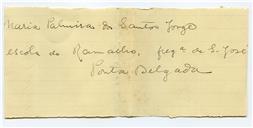 Maria Palmira dos Santos Jorge
escola do Ramalho, fregª de S. José
Ponta Delgada